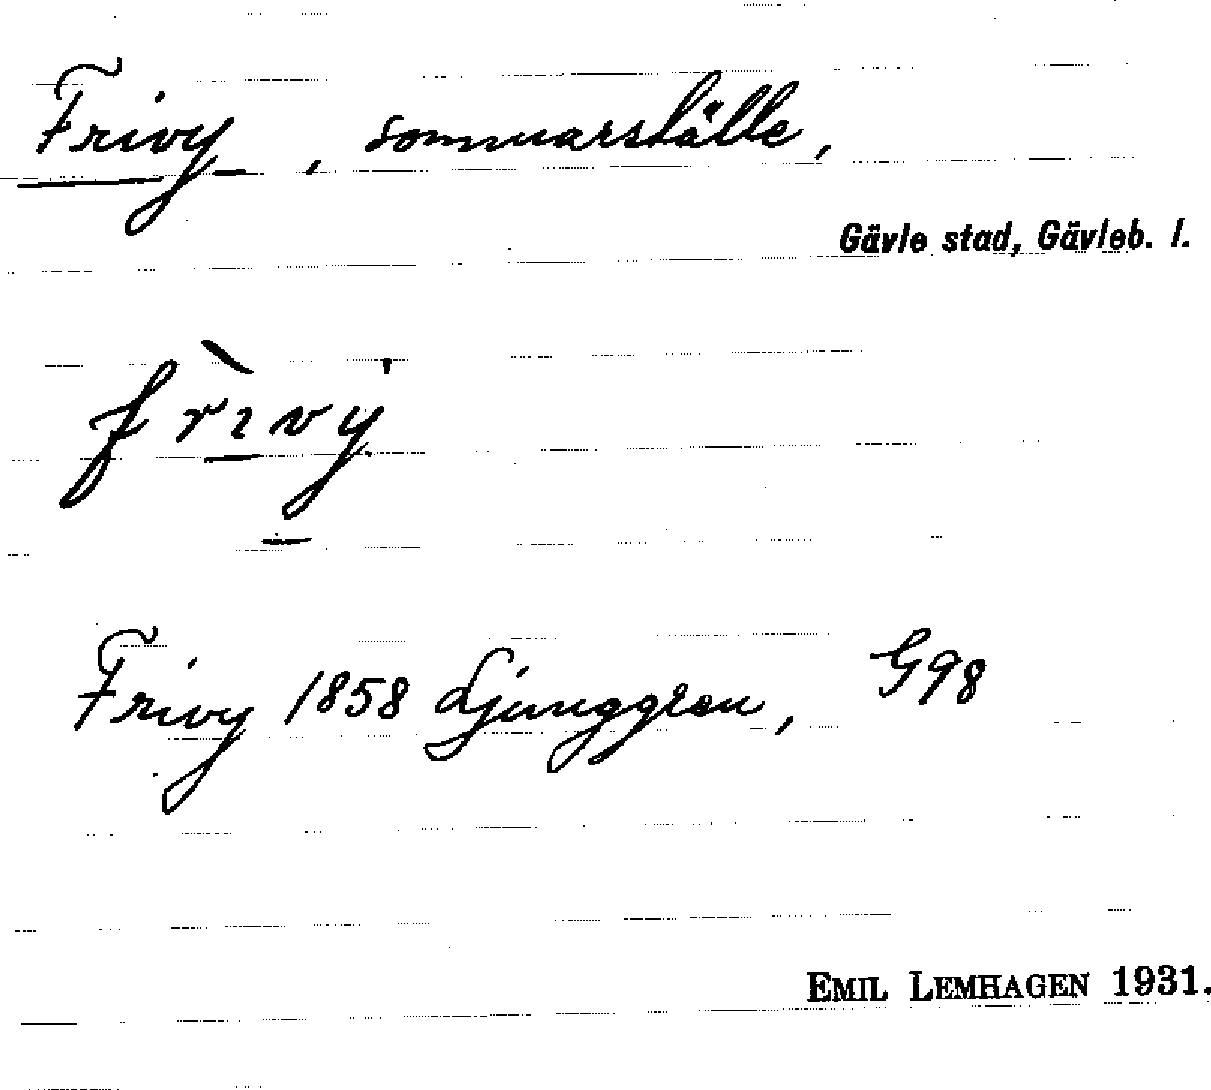 Frivy, sommarställe,
Gävle stad, Gävleb. l.
frìvy
Frivy 1858 Ljunggren, G98
EMIL LEMHAGEN 1931.